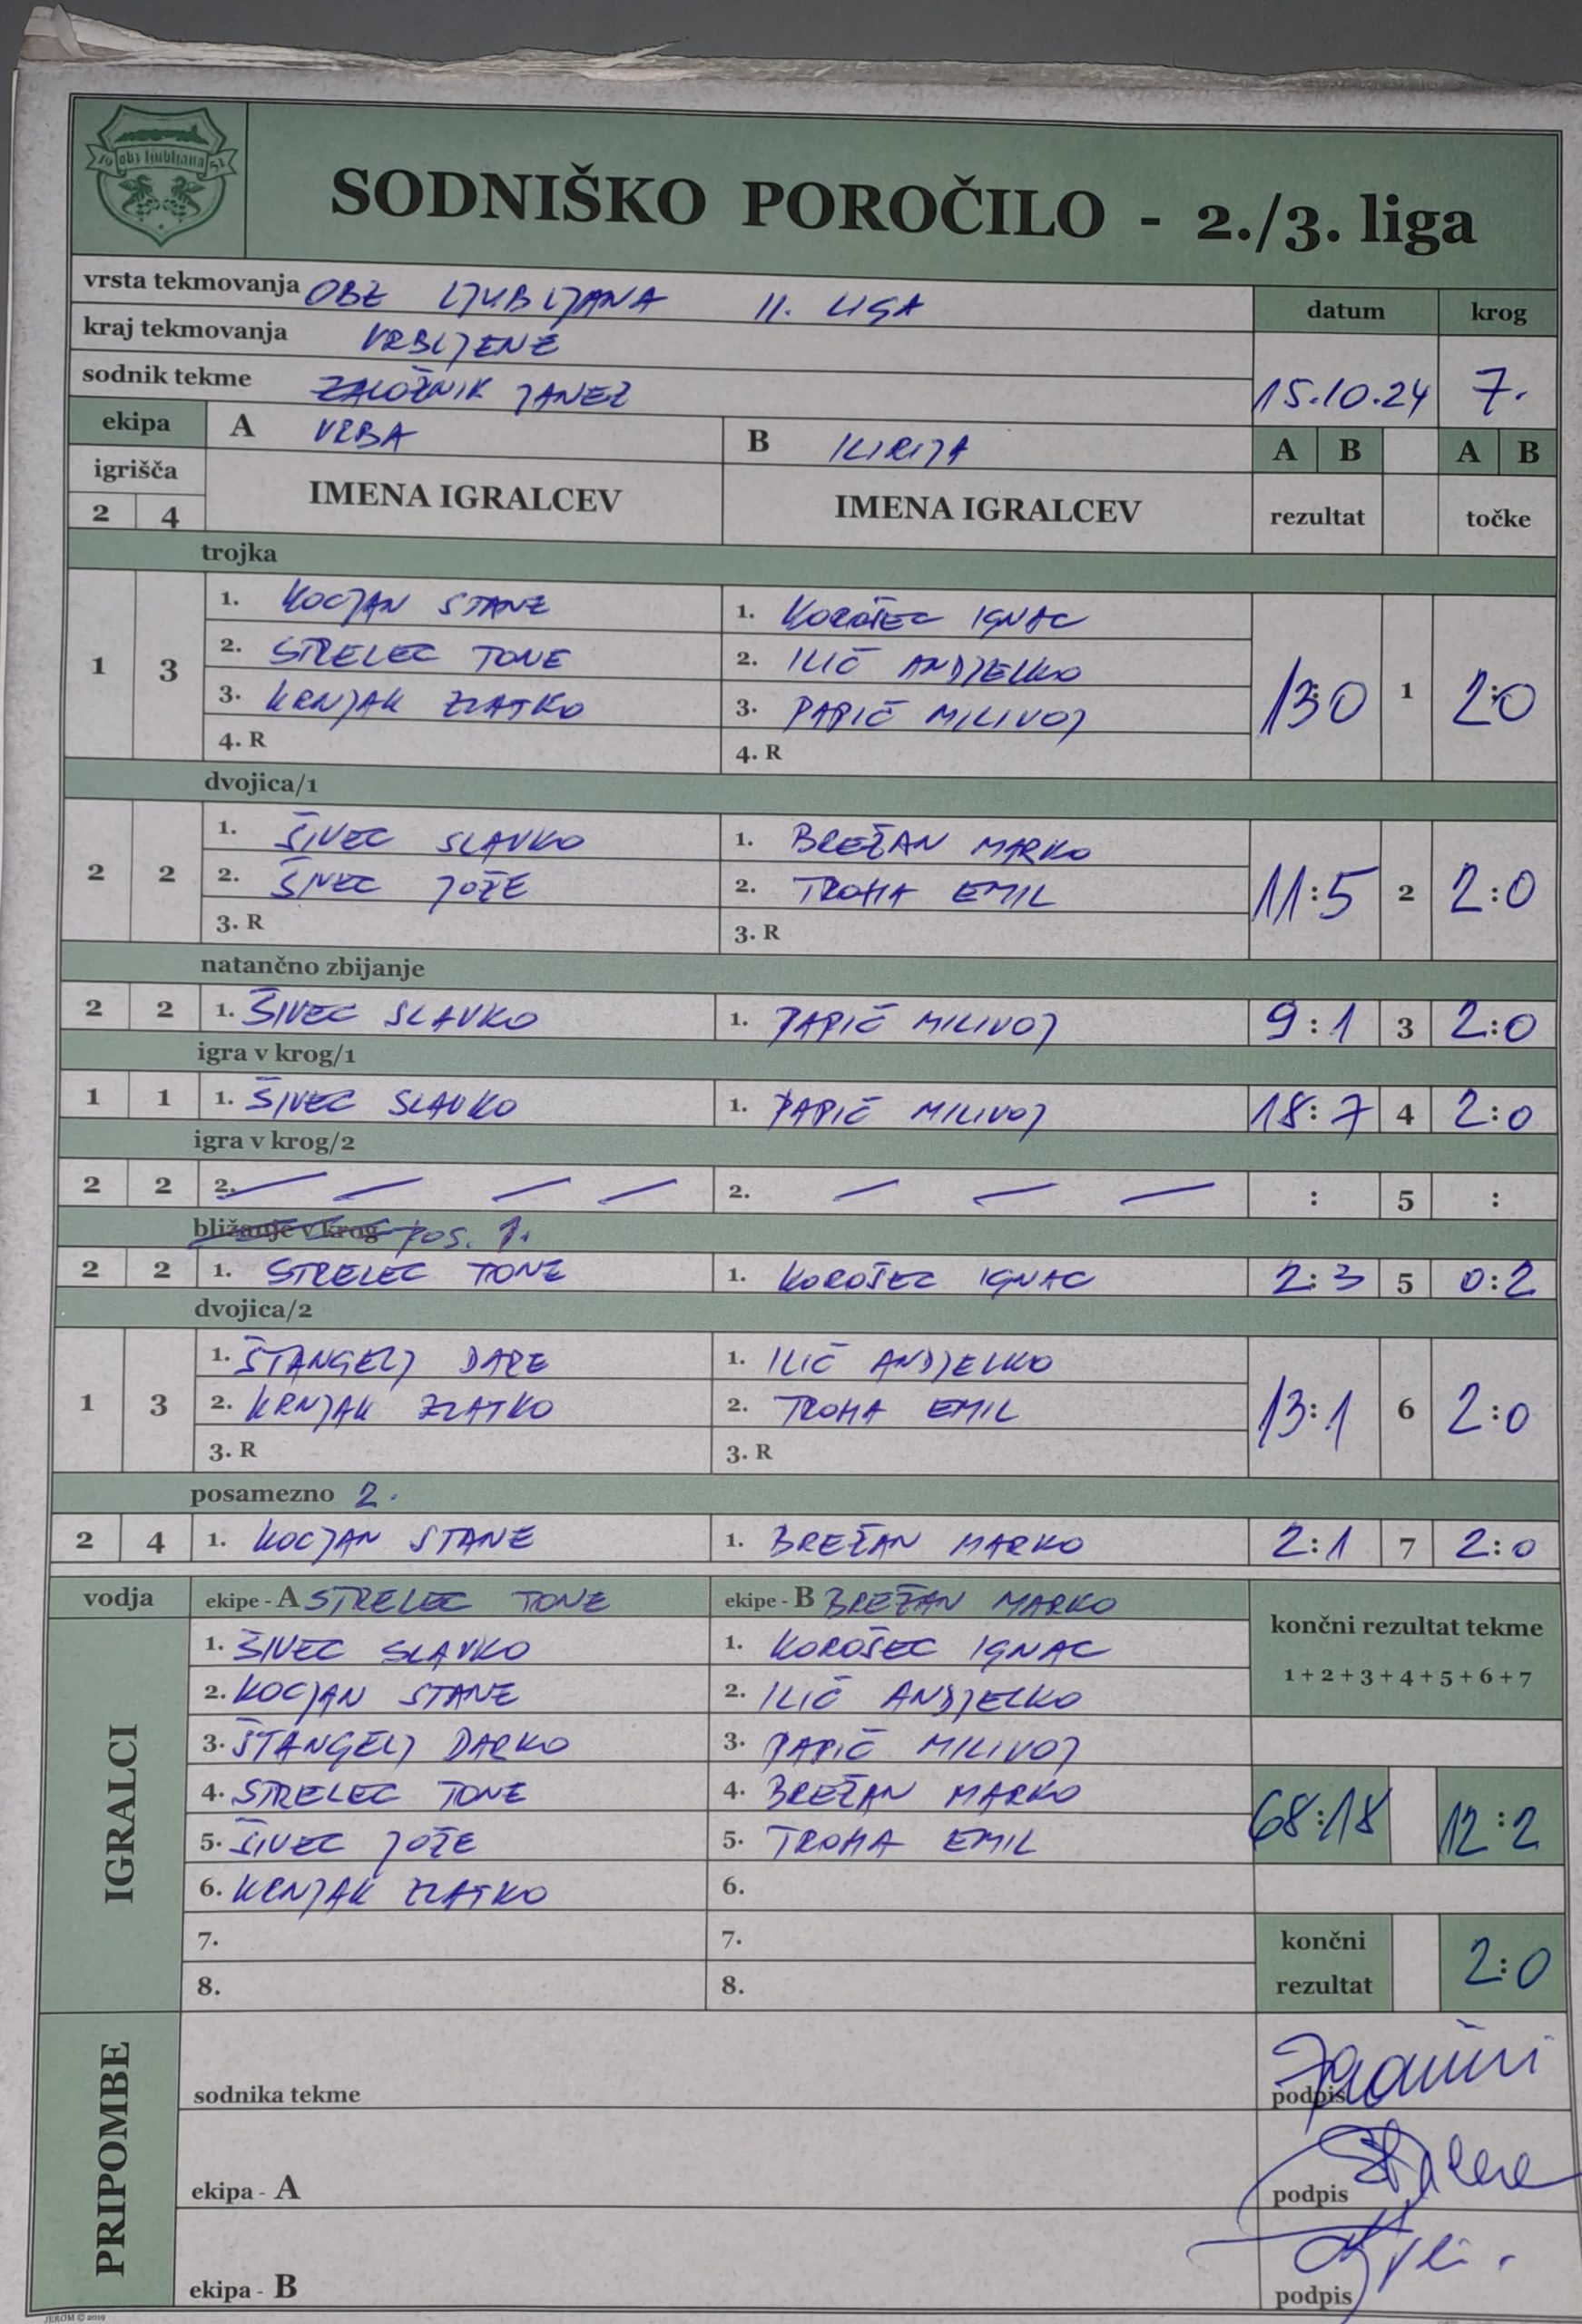 10 obz ljubljana 51
SODNIŠKO POROČILO - 2./3. liga
vrsta tekmovanja OBZ LJUBLJANA II. LIGA
datum krog
kraj tekmovanja VRBLJENE
sodnik tekme ZALOŽNIK JANEZ
15.10.24 7.
ekipa A VRBA B ILIRIJA A B A B
igrišča IMENA IGRALCEV IMENA IGRALCEV rezultat točke
2 4
trojka
1. KOCJAN STANE 1. KOROŠEC IGNAC
1 3 2. STRELEC TONE 2. ILIČ ANDJELKO 13:0 1 2:0
3. KRNJAK ZLATKO 3. PAPIČ MILIVOJ
4. R 4. R
dvojica/1
1. ŠIVEC SLAVKO 1. BREŽAN MARKO
2 2 2. ŠIVEC JOŽE 2. TROHA EMIL 11:5 2 2:0
3. R 3. R
natančno zbijanje
2 2 1. ŠIVEC SLAVKO 1. PAPIČ MILIVOJ 9:1 3 2:0
igra v krog/1
1 1 1. ŠIVEC SLAVKO 1. PAPIČ MILIVOJ 18:7 4 2:0
igra v krog/2
2 2 2. — — — — 2. — — — : 5 :
bližanje v krog POS. 1.
2 2 1. STRELEC TONE 1. KOROŠEC IGNAC 2:3 5 0:2
dvojica/2
1. ŠTANGELJ DARE 1. ILIČ ANDJELKO
1 3 2. KRNJAK ZLATKO 2. TROHA EMIL 13:1 6 2:0
3. R 3. R
posamezno 2.
2 4 1. KOCJAN STANE 1. BREŽAN MARKO 2:1 7 2:0
vodja ekipe - A STRELEC TONE ekipe - B BREŽAN MARKO
končni rezultat tekme
1 + 2 + 3 + 4 + 5 + 6 + 7
IGRALCI
1. ŠIVEC SLAVKO 1. KOROŠEC IGNAC
2. KOCJAN STANE 2. ILIČ ANDJELKO
3. ŠTANGELJ DARKO 3. PAPIČ MILIVOJ
4. STRELEC TONE 4. BREŽAN MARKO
68:18 12:2
5. ŠIVEC JOŽE 5. TROHA EMIL
6. KRNJAK ZLATKO 6.
7. 7.
8. 8.
končni rezultat 2:0
PRIPOMBE
sodnika tekme podpis
ekipa - A podpis
ekipa - B podpis
JEROM © 2019